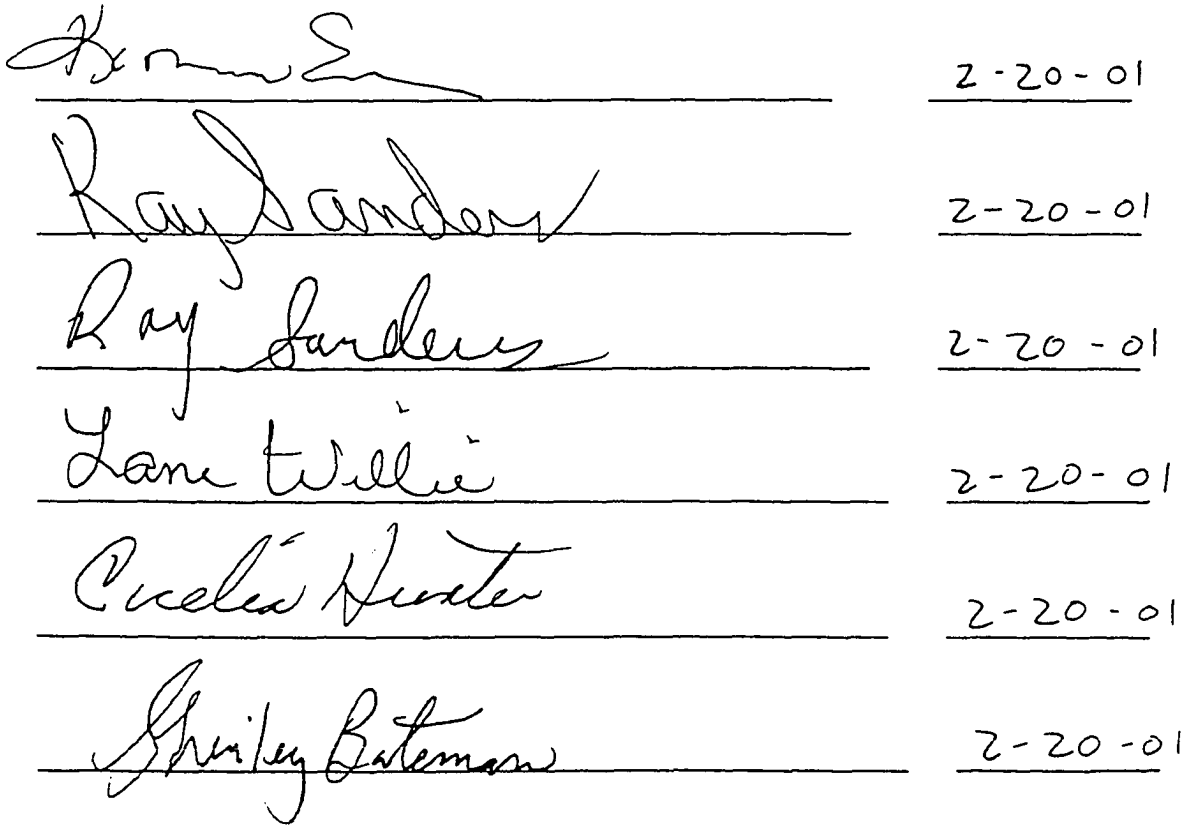 2-20-01
Ray Sanders 2-20-01
Ray Sanders 2-20-01
Lane Willie 2-20-01
Hunter 2-20-01
Shirley Bateman 2-20-01